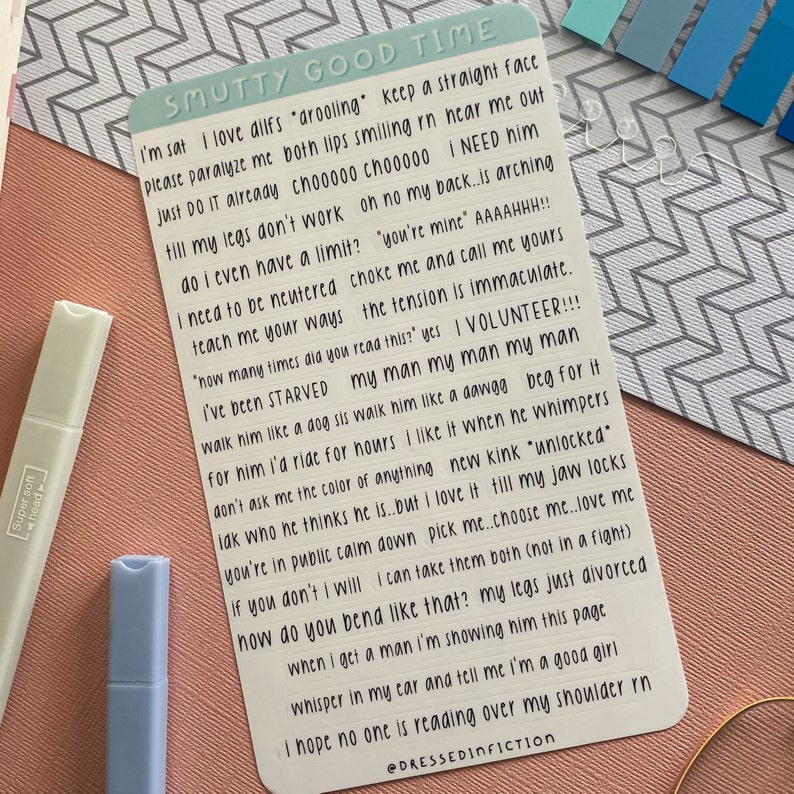 SMUTTY GOOD TIME
i'm sat i love dilfs *drooling* keep a straight face
please paralyze me both lips smiling rn hear me out
just DO IT already chooooo chooooo i NEED him
till my legs don't work oh no my back..is arching
do i even have a limit? "you're mine" AAAAHHH!!
i need to be neutered choke me and call me yours
teach me your ways the tension is immaculate.
"how many times did you read this?" yes I VOLUNTEER!!!
i've been STARVED my man my man my man
walk him like a dog sis walk him like a dawgg beg for it
for him i'd ride for hours i like it when he whimpers
don't ask me the color of anything new kink *unlocked*
idk who he thinks he is..but i love it till my jaw locks
you're in public calm down pick me..choose me..love me
if you don't i will i can take them both (not in a fight)
how do you bend like that? my legs just divorced
when i get a man i'm showing him this page
whisper in my ear and tell me i'm a good girl
i hope no one is reading over my shoulder rn
@DRESSEDINFICTION
Super soft
head